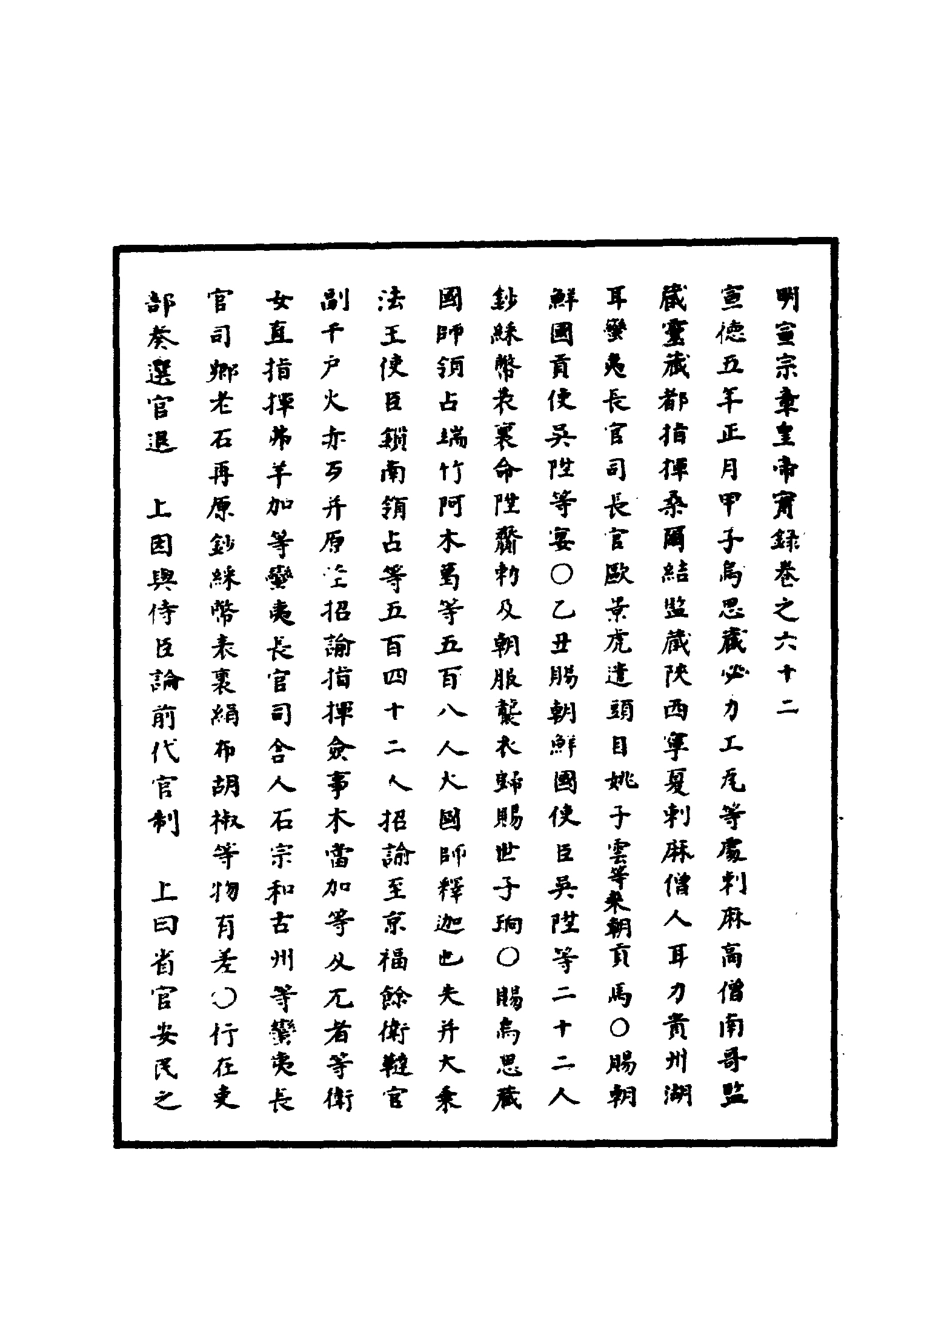 明宣宗章皇帝實錄卷之六十二
宣德五年正月甲子烏思藏必力工瓦等處剌麻高僧南哥監
藏靈藏都指揮桑爾結監藏陝西寧夏剌麻僧人耳力貴州湖
耳蠻夷長官司長官歐景虎遣頭目姚子雲等來朝貢馬○賜朝
鮮國貢使吳陞等宴○乙丑賜朝鮮國使臣吳陞等二十二人
鈔綵幣表裏命陞齎勑及朝服襲衣歸賜世子珦○賜烏思藏
國師領占端竹阿木葛等五百八人大國師釋迦也失并大乘
法王使臣鎖南領占等五百四十二人招諭至京福餘衛韃官
副千戶火赤歹并原差招諭指揮僉事木當加等及兀者等衛
女直指揮弗羊加等蠻夷長官司舍人石宗和古州等蠻夷長
官司鄉老石再原鈔綵幣表裏絹布胡椒等物有差○行在吏
部奏選官退　上因與侍臣論前代官制　上曰省官安民之